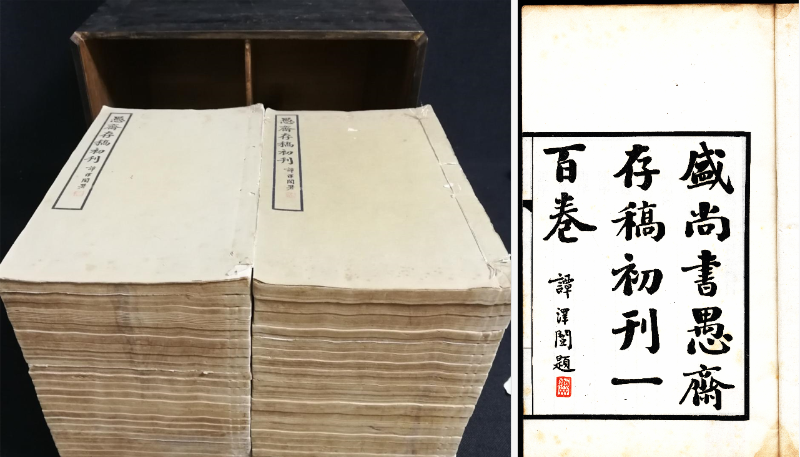 愚齋存稿初刊 譚澤闓署
愚齋存稿初刊 譚澤闓署
盛尚書愚齋
存稿初刊一
百卷 譚澤闓題